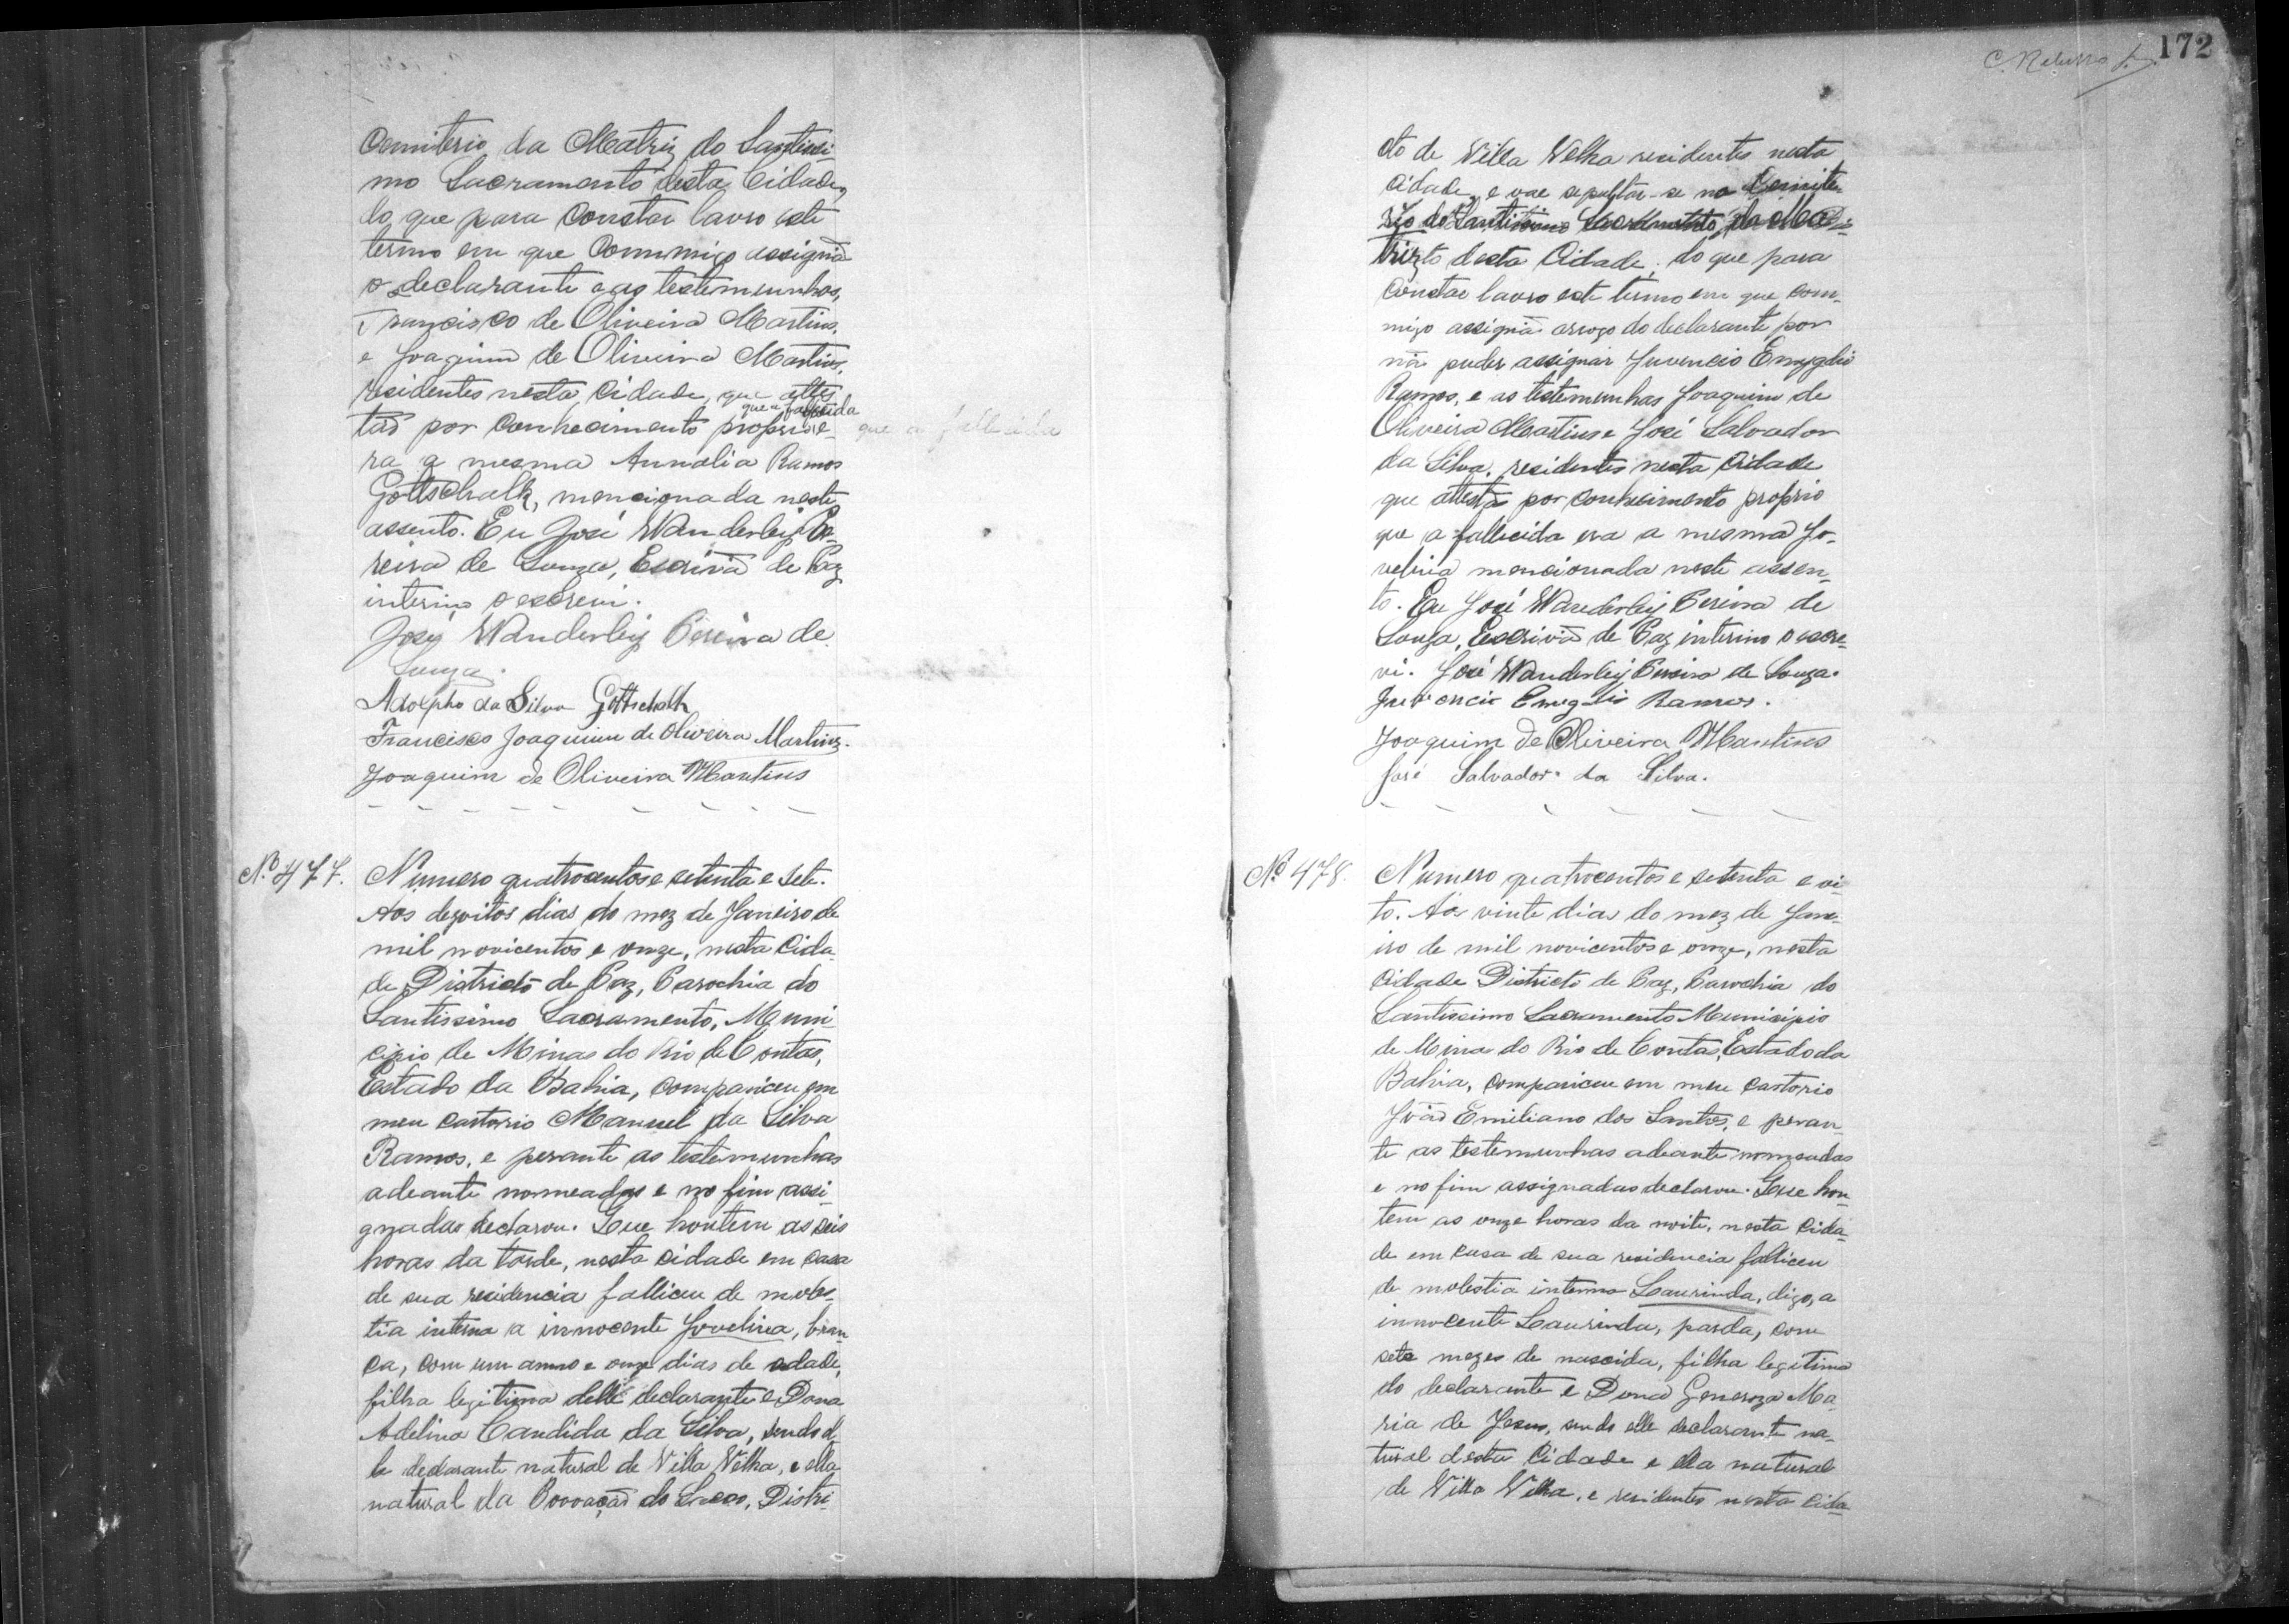 Cemiterio da Matriz do Santissi-
mo Sacramento desta Cidade,
do que para constar lavro este
termo em que commigo assignão
o declarante e as testemunhas,
Francisco de Oliveira Martins,
e Joaquim de Oliveira Martins,
residentes nesta Cidade, que attes
tão por conhecimento proprio que a fallecida e-
ra a mesma Annalia Ramos
Gottschalk, mencionada neste
assento. Eu José Wanderley Pe-
reira de Souza, Escrivão de Paz
interino o escrevi.
José Wanderley Pereira de
Souza.
Adolpho da Silva Gottschalk
Francisco Joaquim de Oliveira Martins.
Joaquim de Oliveira Martins
Nº 477.
Numero quatrocentos e setenta e sete.
Aos dezoitos dias do mez de Janeiro de
mil novicentos e onze, nesta Cida-
de Districto de Paz, Parochia do
Santissimo Sacramento, Muni-
cipio de Minas do Rio de Contas,
Estado da Bahia, compariceu em
meu cartorio Manuel da Silva
Ramos, e perante as testemunhas
adeante nomeadas e no fim assi-
gnadas declarou. Que hontem as seis
horas da tarde, nesta cidade em casa
de sua residencia falliceu de moles-
tia interna a innocente Jovelina, bran
ca, com um anno e onze dias de edade,
filha legitima delle declarante e Dona
Adelina Candida da Silva, sendo el
le declarante natural de Villa Velha, e ella
natural da Povoação do , Distri
172
cto de Villa Velha residentes nesta
Cidade, e vae sepultar-se no Cemite
rio do Santissimo Sacramento da Ma
triz desta Cidade; do que para
constar lavro este termo em que com-
migo assignão arrogo do declarante por
não puder assignar Juvencio Emygdio
Ramos, e as testemunhas Joaquim de
Oliveira Martins e José Salvador
da Silva, residentes nesta Cidade
que attestão por conhecimento proprio
que a fallecida era a mesma Jo-
velina mencionada neste assen-
to. Eu José Wanderley Pereira de
Souza, Escrivão de Paz interino o escre-
vi. José Wanderley Pereira de Souza.
Juvencio Emygdio Ramos.
Joaquim de Oliveira Martins
José Salvador da Silva.
Nº 478.
Numero quatrocentos e setenta e oi-
to. Aos vinte dias do mez de Jane-
iro de mil novicentos e onze, nesta
Cidade Districto de Paz, Parochia do
Santissimo Sacramento Municipio
de Minas do Rio de Contas, Estado da
Bahia, compariceu em meu cartorio
João Emiliano dos Santos, e peran
te as testemunhas adeante nomeadas
e no fim assignadas declarou. Que hon
tem as onze horas da noite, nesta Cida-
de em casa de sua residencia falliceu
de molestia interna Laurinda, digo, a
innocente Laurinda, parda, com
sete mezes de nascida, filha legitima
do declarante e Dona Generoza Ma
ria de Jesus, sendo elle declarante na-
tural desta Cidade e ella natural
de Villa Velha, e residentes nesta Cida-